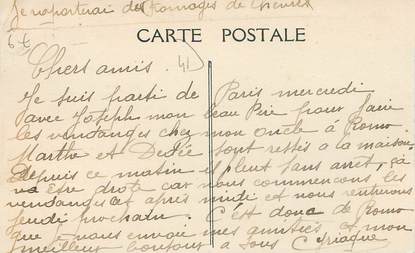 Je rapporterai des fromages de chèvres
6 €
CARTE POSTALE
41
Chers amis.
Je suis parti de Paris mercredi
avec Joseph mon beau Père pour faire
les vendanges chez mon oncle à
Marthe et Dédée sont restés à la maison.
Depuis ce matin il pleut sans arrêt, ça
va être drole car nous commencons les
vendanges cet après midi et nous rentrerons
jeudi prochain. C'est donc de
que je vous envoie mes amitiés et mon
meilleur bonjour à tous